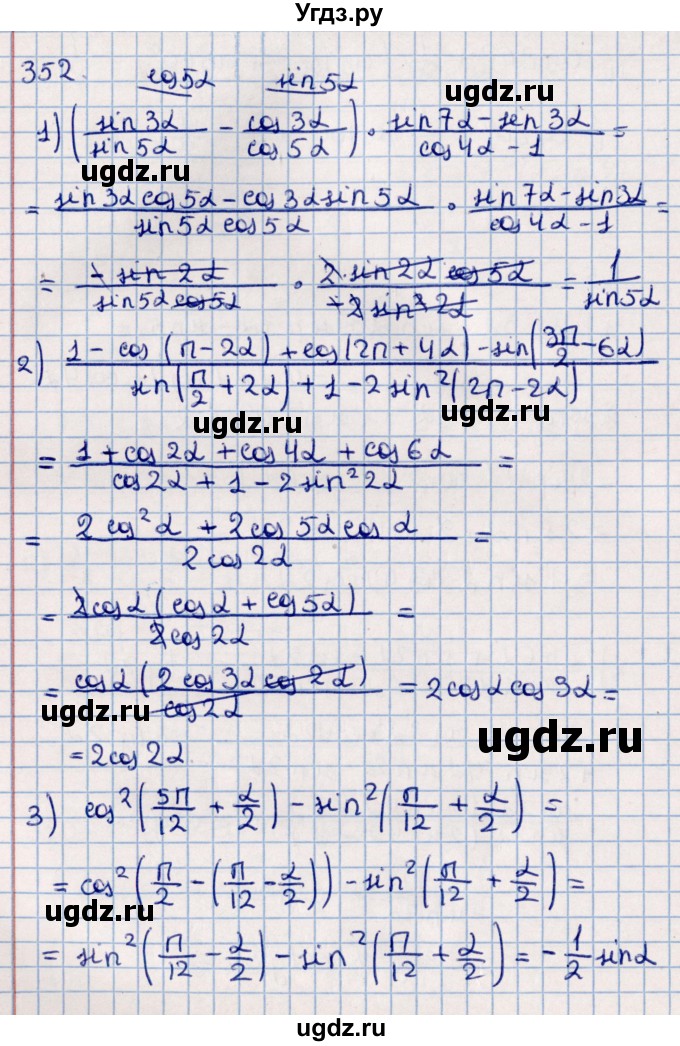 Угдз.ру
352. cos5α sin5α
ugdz.ru
1) (sin3α/sin5α − cos3α/cos5α) · (sin7α − sin3α)/(cos4α − 1) =
ugdz.ru
= (sin3αcos5α − cos3αsin5α)/(sin5αcos5α) · (sin7α − sin3α)/(cos4α − 1) =
ugdz.ru ugdz.ru
= (−sin2α)/(sin5αcos5α) · (2·sin2αcos5α)/(−2sin²2α) = 1/sin5α
2) (1 − cos(π−2α) + cos(2π+4α) − sin(3π/2 − 6α))/(sin(π/2 + 2α) + 1 − 2sin²(2π−2α))
ugdz.ru
= (1 + cos2α + cos4α + cos6α)/(cos2α + 1 − 2sin²2α) =
ugdz.ru
= (2cos²α + 2cos5αcosα)/(2cos2α) =
ugdz.ru
= (2cosα(cosα + cos5α))/(2cos2α) =
= (cosα(2cos3αcos2α))/(cos2α) = 2cosαcos3α =
ugdz.ru
ugdz.ru
= 2cos2α.
3) cos²(5π/12 + α/2) − sin²(π/12 + α/2) =
= cos²(π/2 − (π/12 − α/2)) − sin²(π/12 + α/2) =
ugdz.ru ugdz.ru
= sin²(π/12 − α/2) − sin²(π/12 + α/2) = −1/2 sinα
ugdz.ru